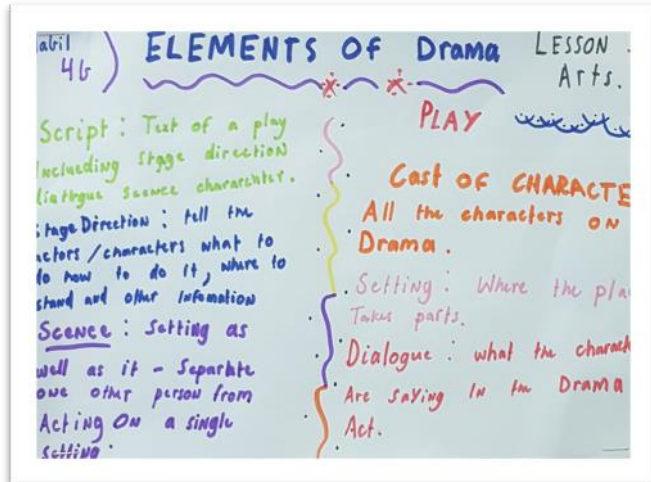 abil
4G
ELEMENTS OF Drama
LESSON
Arts.
Script : Text of a play
including stage direction
scence chararchter.
stage Direction : tell the
actors / characters what to
do how to do it, where to
stand and other Infomation
Scence : Setting as
well as it - Separate
one other person from
Acting On a single
Setting.
PLAY
Cast OF CHARACTE
All the characters on
Drama.
Setting : Where the pla
Takes parts.
Dialogue : what the charact
Are saying In the Drama
Act.